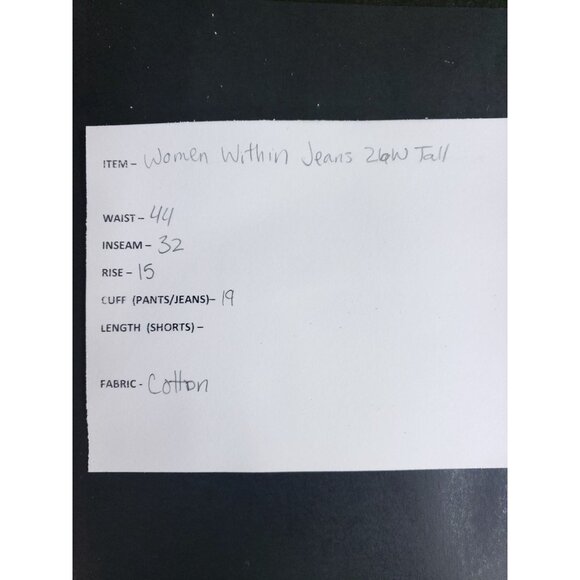 ITEM – Women Within Jeans 26W Tall
WAIST – 44
INSEAM – 32
RISE – 15
CUFF (PANTS/JEANS)– 19
LENGTH (SHORTS) –
FABRIC - Cotton